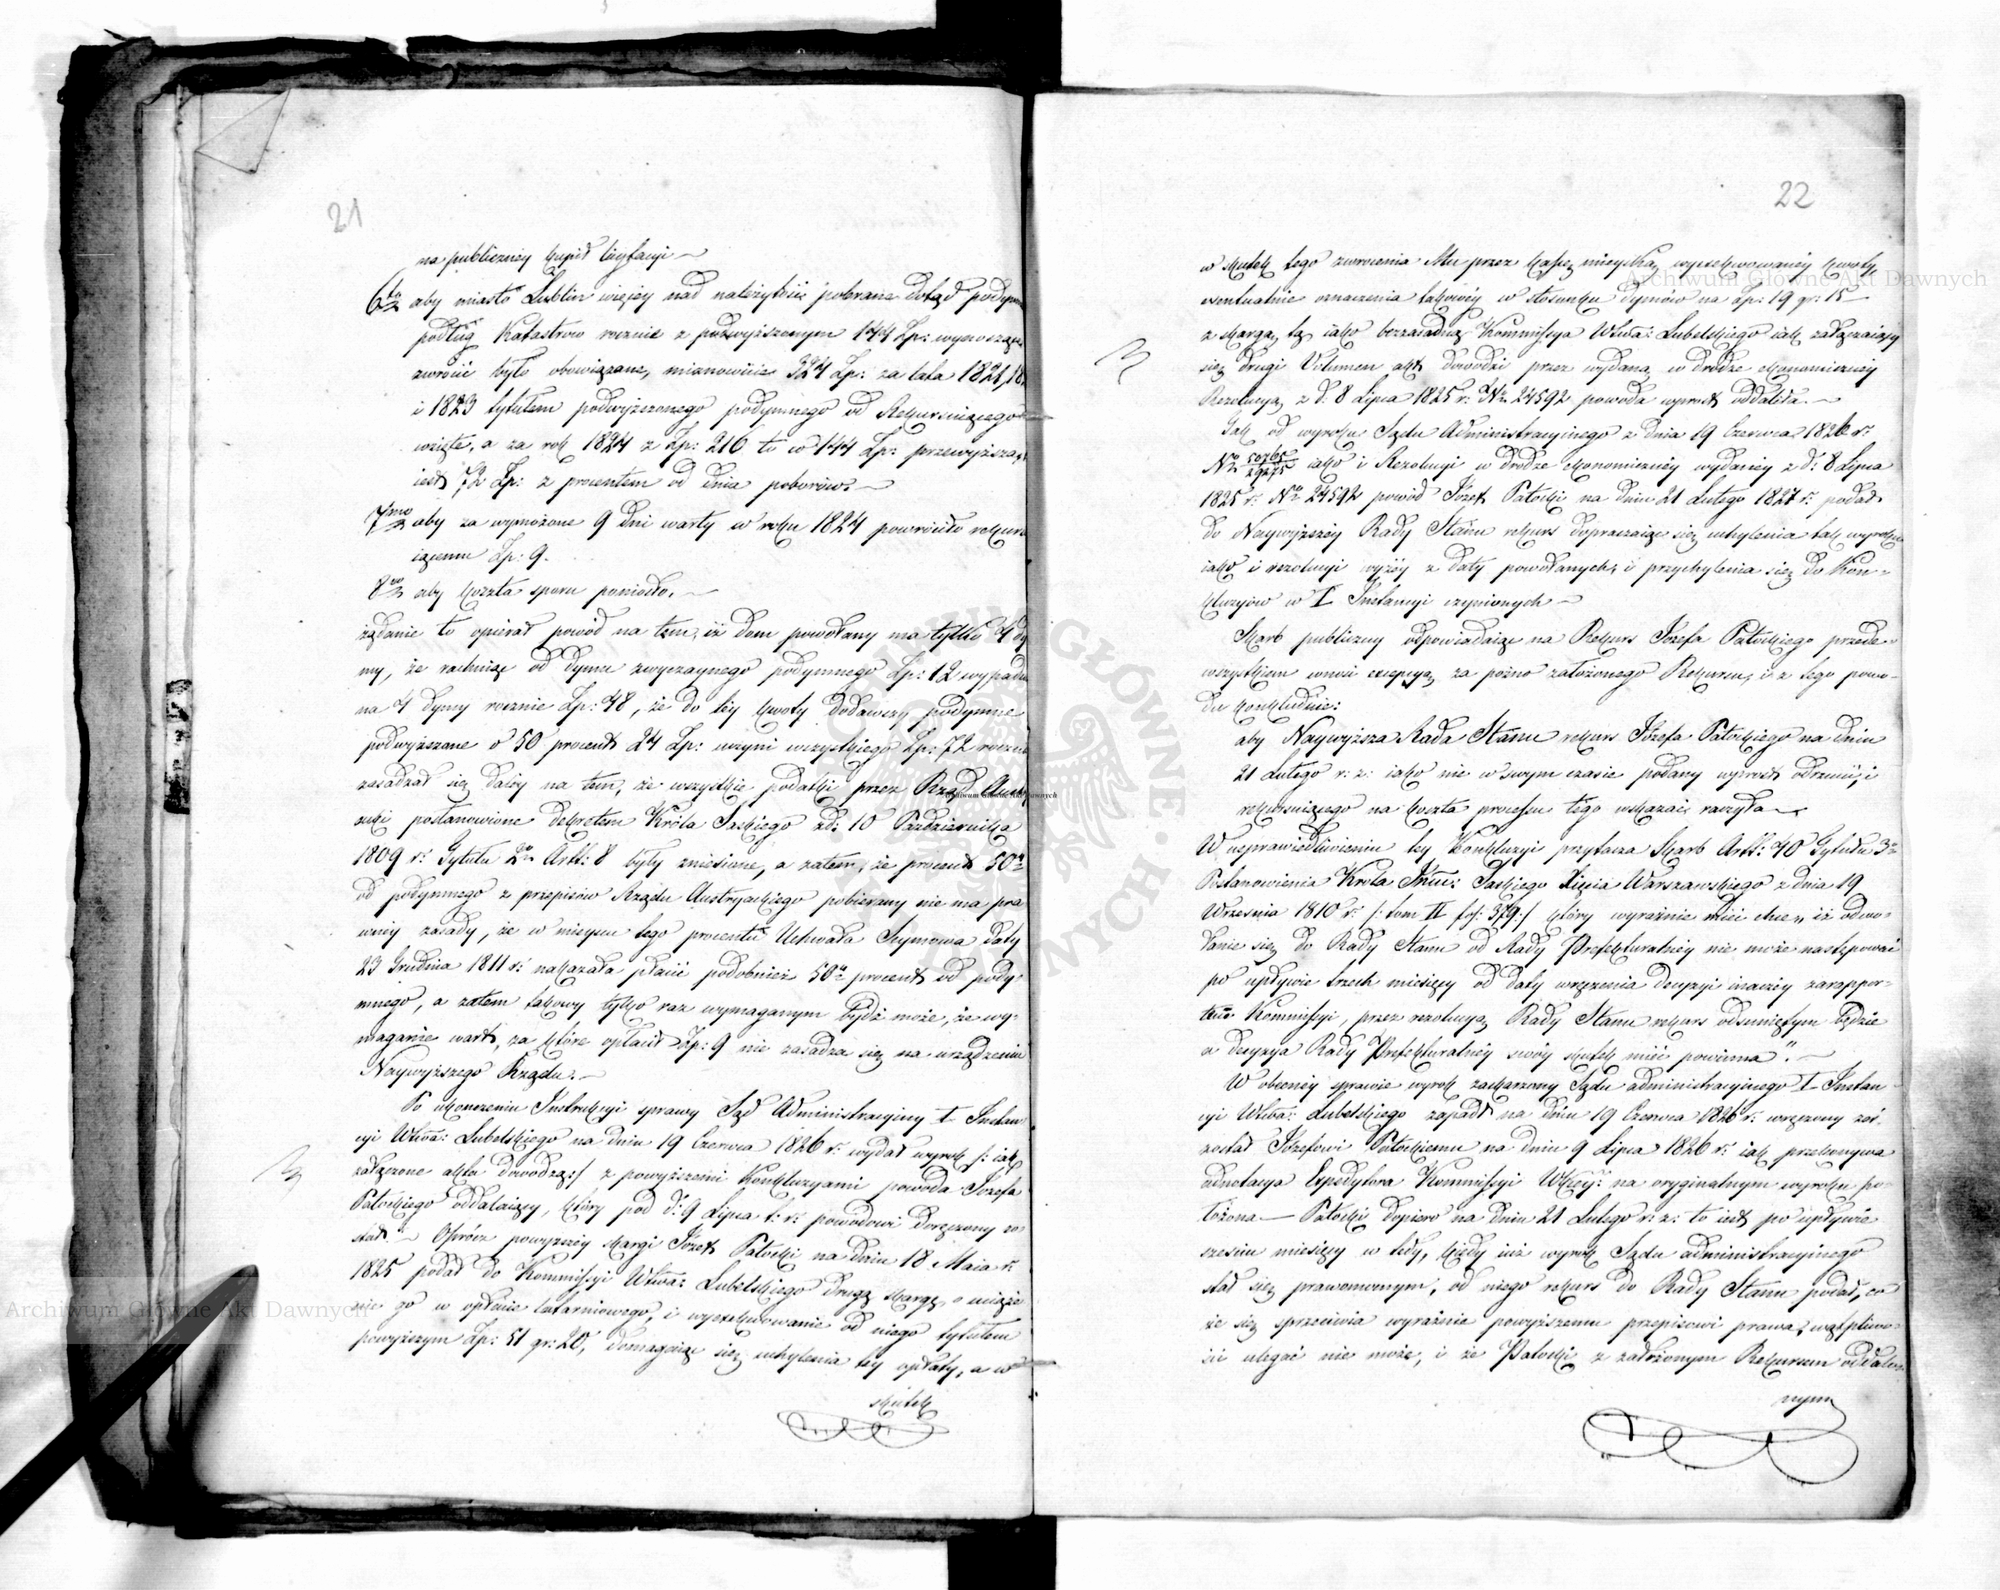 21
na publiczney kupił licytacyi —
6to aby miasto Lublin więcey nad należytość pobrane dotąd podymne
podług Katastrow rocznie z podwyższonym 144 Zp: wynoszące
zwrócić było obowiązane, mianowicie 324 Zp: za lata 1821, 182
i 1823 tytułem podwyższonego podymnego od Rekursuiącego
wzięte, a za rok 1824 z Zp: 216 to co 144 Zp: przewyższa, to
iest 72 Zp: z procentem od dnia poborów. —
7mo aby za wymożone 9 dni warty w roku 1824 powróciło rekursu
iącemu Zp: 9.
8vo aby koszta sporu poniosło. —
żądanie to opierał powód na tem, iż dom powołany ma tylko 4 dy
my, że rachuiąc od dymu zwyczaynego podymnego Zp: 12 wypada
na 4 dymy rocznie Zp: 48, że do tey kwoty dodawszy podymne
podwyższone o 50 procent 24 Zp: uczyni wszystkiego Zp: 72 rocznie
zasadzał się daley na tem, że wszystkie podatki przez Rząd Aust
ryacki postanowione dekretem Króla Saskiego z d: 10 Października
1809 r: Tytułu 2o Artt: 8 były zniesione, a zatem, że procent 50a
od podymnego z przepisów Rządu Austryackiego pobierany nie ma pra
wney zasady, że w mieysce tego procentu Uchwała Seymowa daty
23 Grudnia 1811 r: nakazała płacić podobnież 50a procent od pody-
mnego, a zatem takowy tylko raz wymaganym bydź może, że wy-
maganie wart, za które opłacił Zp: 9 nie zasadza się na urządzeniu
Naywyższego Rządu. —
Po ukończeniu Instrukcyi sprawy Sąd Administracyiny I Instan
cyi Wtwa: Lubelskiego na dniu 19 Czerwca 1826 r: wydał wyrok /: iak
załączone akta dowodzą :/ z powyższemi Konkluzyami powoda Józefa
Patockiego oddalaiący, który pod d: 9 Lipca t: r: powodowi doręczony zo-
stał. — Oprócz powyższey skargi Józef Patocki na dniu 18 Maia r:
1825 podał do Kommissyi Wtwa: Lubelskiego drugą skargę o
nie go w opłacie latarniowego, i wyexekwowanie od niego tytułem
powyższym Zp: 51 gr: 20, domagaiąc się uchylenia tey opłaty, a w
skutek
22
w skutek tego zwrócenia Mu przez Kassę mieyską wyexekwowaney kwoty
ewentualnie oznaczenia takowey w stosunku dymów na Zp: 19 gr: 15 —
z skargą tą iako bezzasadną Kommissya Wtwa: Lubelskiego iak załączaiący
się drugi Volumen akt dowodzi przez wydaną w drodze ekonomiczney
Rezolucyą z d: 8 Lipca 1825 r: No 24592 powoda wprost oddaliła. —
Tak od wyroku Sądu Administracyinego z dnia 19 Czerwca 1826 r:
No 50765/29275 iako i Rezolucyi w drodze ekonomiczney wydaney z d: 8 Lipca
1825 r: No 24592 powód Józef Patocki na dniu 21 Lutego 1827 r: podał
do Naywyższey Rady Stanu rekurs dopraszaiąc się uchylenia tak wyroku
iako i rezolucyi wyżey z daty powołanych, i przychylenia się do Kon-
kluzyów w I Instancyi czynionych —
Skarb publiczny odpowiadaiąc na Rekurs Józefa Patockiego przede-
wszystkiem wnosi excepcyą za pózno założonego Rekursu, i z tego powo-
du konkluduie:
aby Naywyższa Rada Stanu rekurs Józefa Patockiego na dniu
21 Lutego r: z: iako nie w swym czasie podany wprost odrzucić, i
rekursuiącego na koszta processu tego wskazać raczyła —
W usprawiedliwieniu tey Konkluzyi przytacza Skarb Artt: 40 Tytułu 3o
Postanowienia Króla Jmci: Saskiego Xięcia Warszawskiego z dnia 19
Września 1810 r: /: tom II fol: 379 :/ który wyraźnie mieć chce, iż odwo-
łanie się do Rady Stanu od Rady Prefekturalney nie może następować
po upływie trzech miesięcy od daty wręczenia decyzyi inaczey zarappor-
tem Kommissyi, przez rezolucyą Rady Stanu rekurs odsuniętym będzie
a decyzya Rady Prefekturalney swóy skutek mieć powinna". —
W obecney sprawie wyrok zaskarżony Sądu administracyinego I Instan
cyi Wtwa: Lubelskiego zapadł na dniu 19 Czerwca 1826 r: wręczony zaś
został Józefowi Patockiemu na dniu 9 Lipca 1826 r: iak przekonywa
adnotacya Expedytora Kommissyi Wkiey: na oryginalnym wyroku po-
łożona — Patocki dopiero na dniu 21 Lutego r: z: to iest po upływie
sześciu miesięcy w tedy, kiedy iuż wyrok Sądu administracyinego
stał się prawomocnym, od niego rekurs do Rady Stanu podał, co
że się sprzeciwia wyraźnie powyższemu przepisowi prawa, wątpliwo-
ści ulegać nie może, i że Patocki z założonym Rekursem oddalo-
nym
Archiwum Główne Akt Dawnych